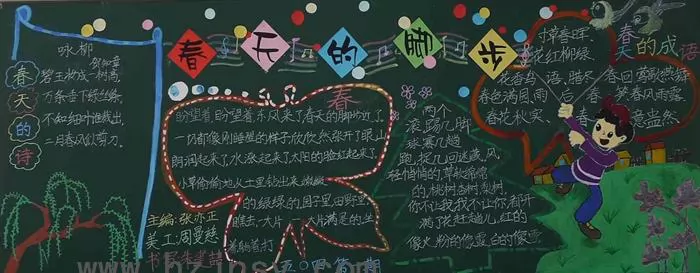 春天的脚步
春天的诗
咏柳
贺知章
碧玉妆成一树高
万条垂下绿丝绦
不知细叶谁裁出
二月春风似剪刀
主编:张亦正
美工:周曼慈
春
盼望着,盼望着,东风来了,春天的脚步近了
一切都像刚睡醒的样子,欣欣然张开了眼,山
朗润起来了,水涨起来了,太阳的脸红起来了.
小草偷偷地从土里钻出来,嫩嫩
的,绿绿的.园子里,田野里
瞧去,一大片一大片满是的.坐
着,躺着,打
两个
滚,踢几脚
球,赛几趟
跑,捉几回迷藏.风
轻悄悄的,草软绵绵
的,桃树、杏树、梨树,
你不让我,我不让你,都开
满了花赶趟儿.红的
像火,粉的像霞,白的像雪
春天的成语
寸草春晖
花红柳绿
花香鸟语,腊尽春回 莺歌燕舞
春色满园,雨后春笋 春风雨露
春花秋实
春意盎然